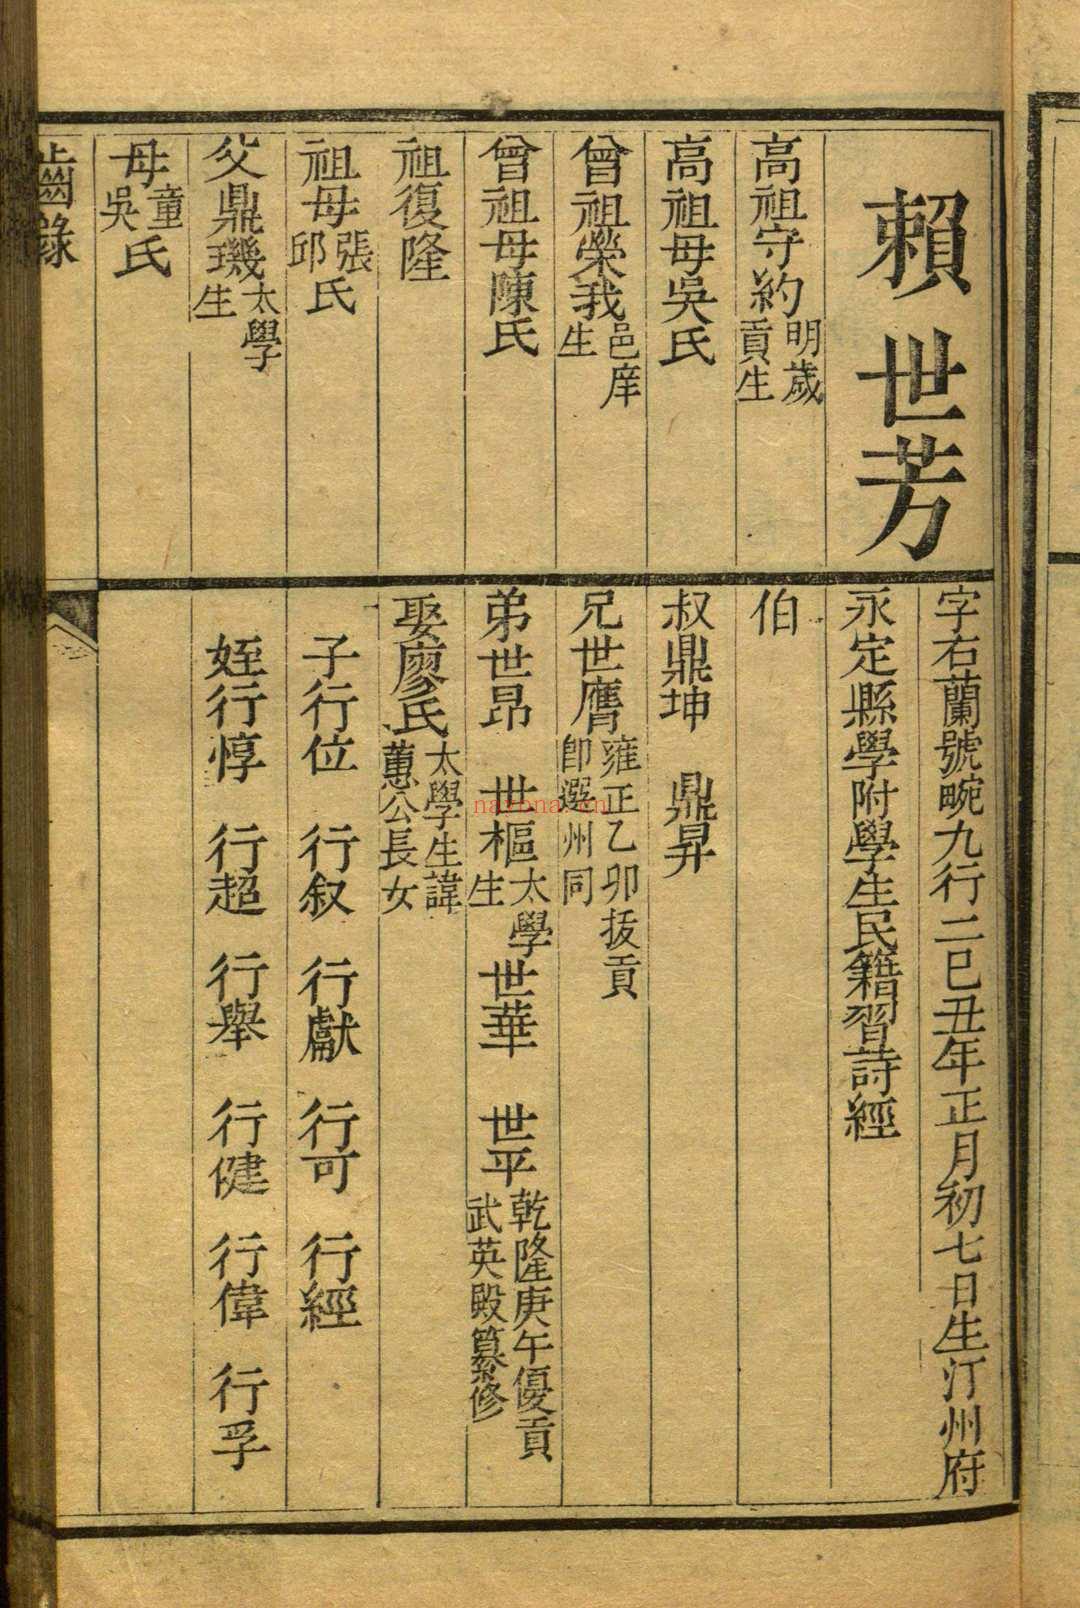 賴世芳
高祖守約明歲貢生
高祖母吳氏
曾祖榮我邑庠生
曾祖母陳氏
祖復隆
祖母張邱氏
父鼎璣太學生
母童吳氏
字右蘭號畹九行二己丑年正月初七日生汀州府
永定縣學附學生民籍習詩經
伯
叔鼎坤　鼎昇
兄世膺雍正乙卯拔貢即選州同
弟世昂　世樞太學生　世華　世平乾隆庚午優貢武英殿纂修
娶廖氏太學生諱蕙公長女
子行位　行叙　行獻　行可　行經
姪行惇　行超　行舉　行健　行偉　行孚
齒錄
nayona.cn